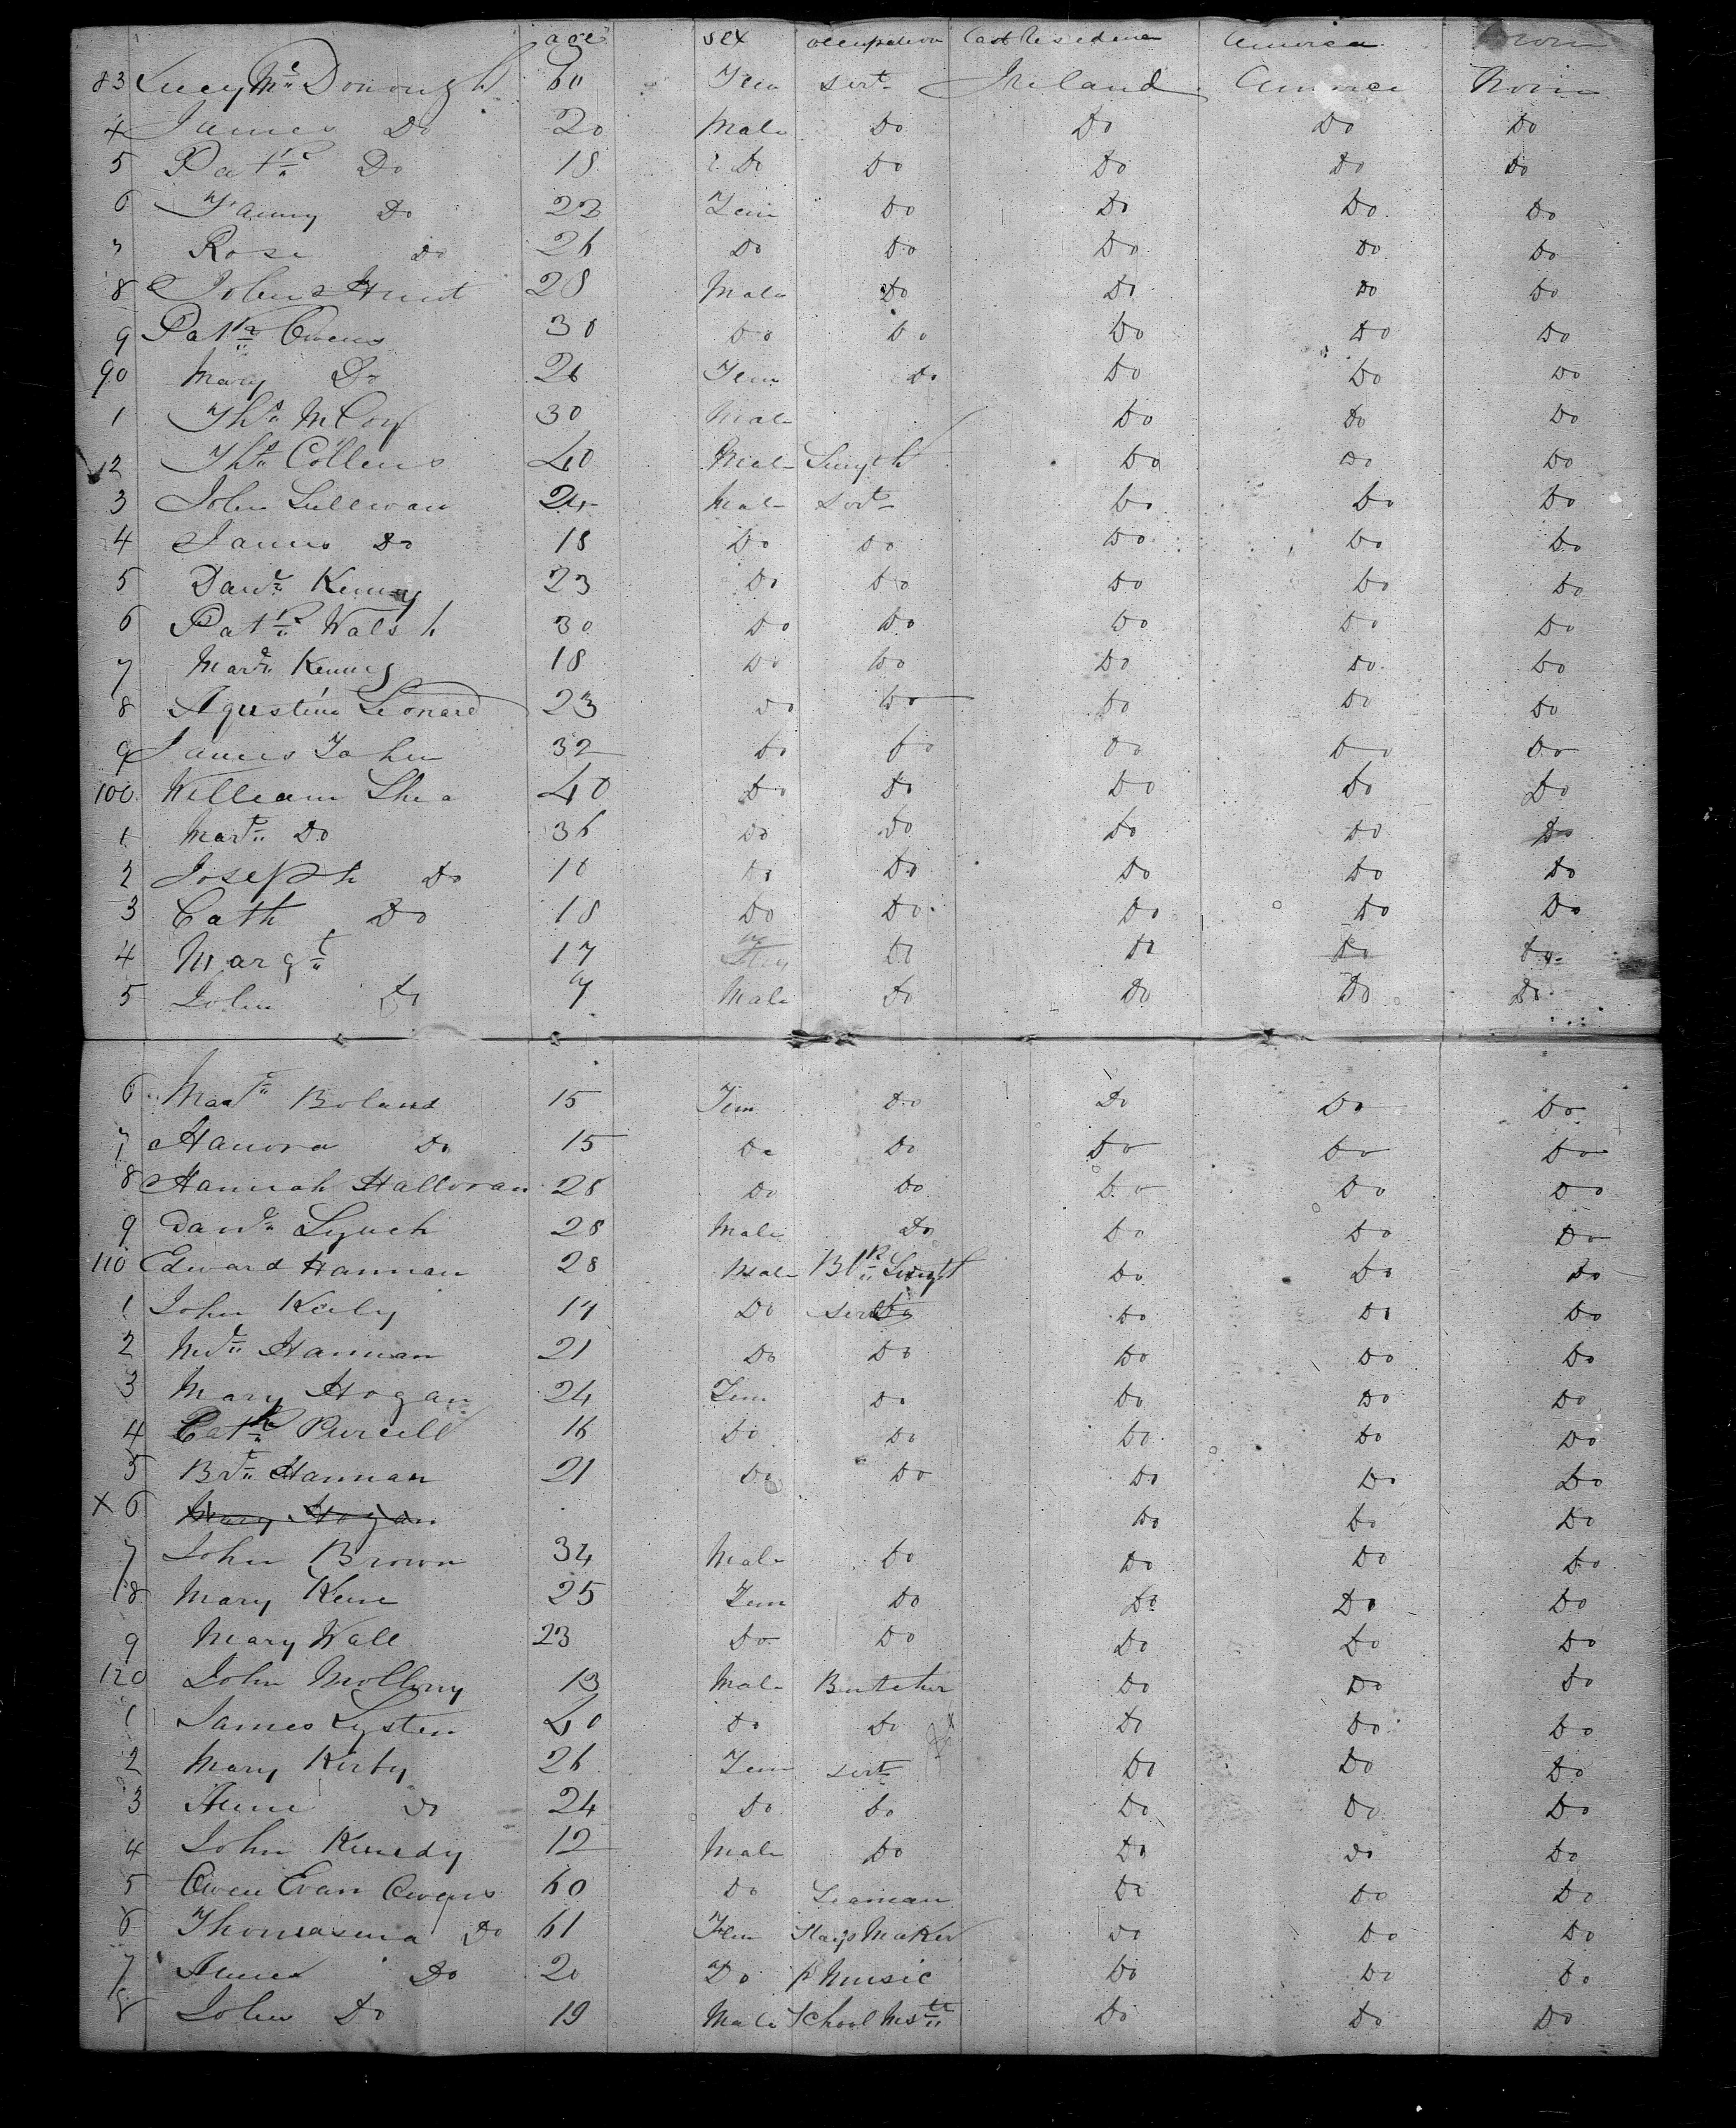 age sex occupation Last Residence America
83 Lucy Mc Donough 60 Fem servt Ireland America None
4 James Do 20 Male Do Do Do Do
5 Patk Do 18 Do Do Do Do Do
6 Fanny Do 22 Fem Do Do Do Do
7 Rose Do 26 Do Do Do Do Do
8 John Hunt 28 Male Do Do Do Do
9 Patk Owens 30 Do Do Do Do Do
90 Mary Do 26 Fem Do Do Do Do
1 Thos McCoy 30 Male Do Do Do
2 Thos Collens 40 Male Smyth Do Do Do
3 John Sullivan 24 Male servt Do Do Do
4 James Do 18 Do Do Do Do Do
5 Danl Kenney 23 Do Do Do Do Do
6 Patk Walsh 30 Do Do Do Do Do
7 Kenney 18 Do Do Do Do Do
8 Agustine Leonard 23 Do Do Do Do Do
9 James 32 Do Do Do Do Do
100 William Shea 40 Do Do Do Do Do
1 Do 36 Do Do Do Do Do
2 Joseph Do 10 Do Do Do Do Do
3 Cath Do 18 Do Do Do Do Do
4 Margt 17 Do Do Do Do
5 John Do 7 Male Do Do Do Do
6 Boland 15 Fem Do Do Do Do
7 Hanora Do 15 Do Do Do Do Do
8 Hannah Halloran 28 Do Do Do Do Do
9 Danl Lynch 28 Male Do Do Do Do
110 Edward Hannan 28 Male Blk Smyth Do Do Do
1 John Kely 17 Do servt Do Do Do
2 Hannan 21 Do Do Do Do Do
3 Mary Hogan 24 Fem Do Do Do Do
4 Cath Purcell 16 Do Do Do Do Do
5 Hannan 21 Do Do Do Do Do
X 6 Mary Hogan Do Do Do
7 John Brown 34 Male Do Do Do Do
8 Mary Kene 25 Fem Do Do Do Do
9 Mary Wall 23 Do Do Do Do Do
120 John Mollony 13 Male Butcher Do Do Do
1 James Lysten 40 Do Do Do Do Do
2 Mary Kirby 26 Fem servt Do Do Do
3 Anne Do 24 Do Do Do Do Do
4 John Kenedy 12 Male Do Do Do Do
5 Owen Evan Owens 60 Do Seaman Do Do Do
6 Thomasena Do 61 Fem Stays Maker Do Do Do
7 Do 20 Do Music Do Do Do
8 John Do 19 Male School Do Do Do